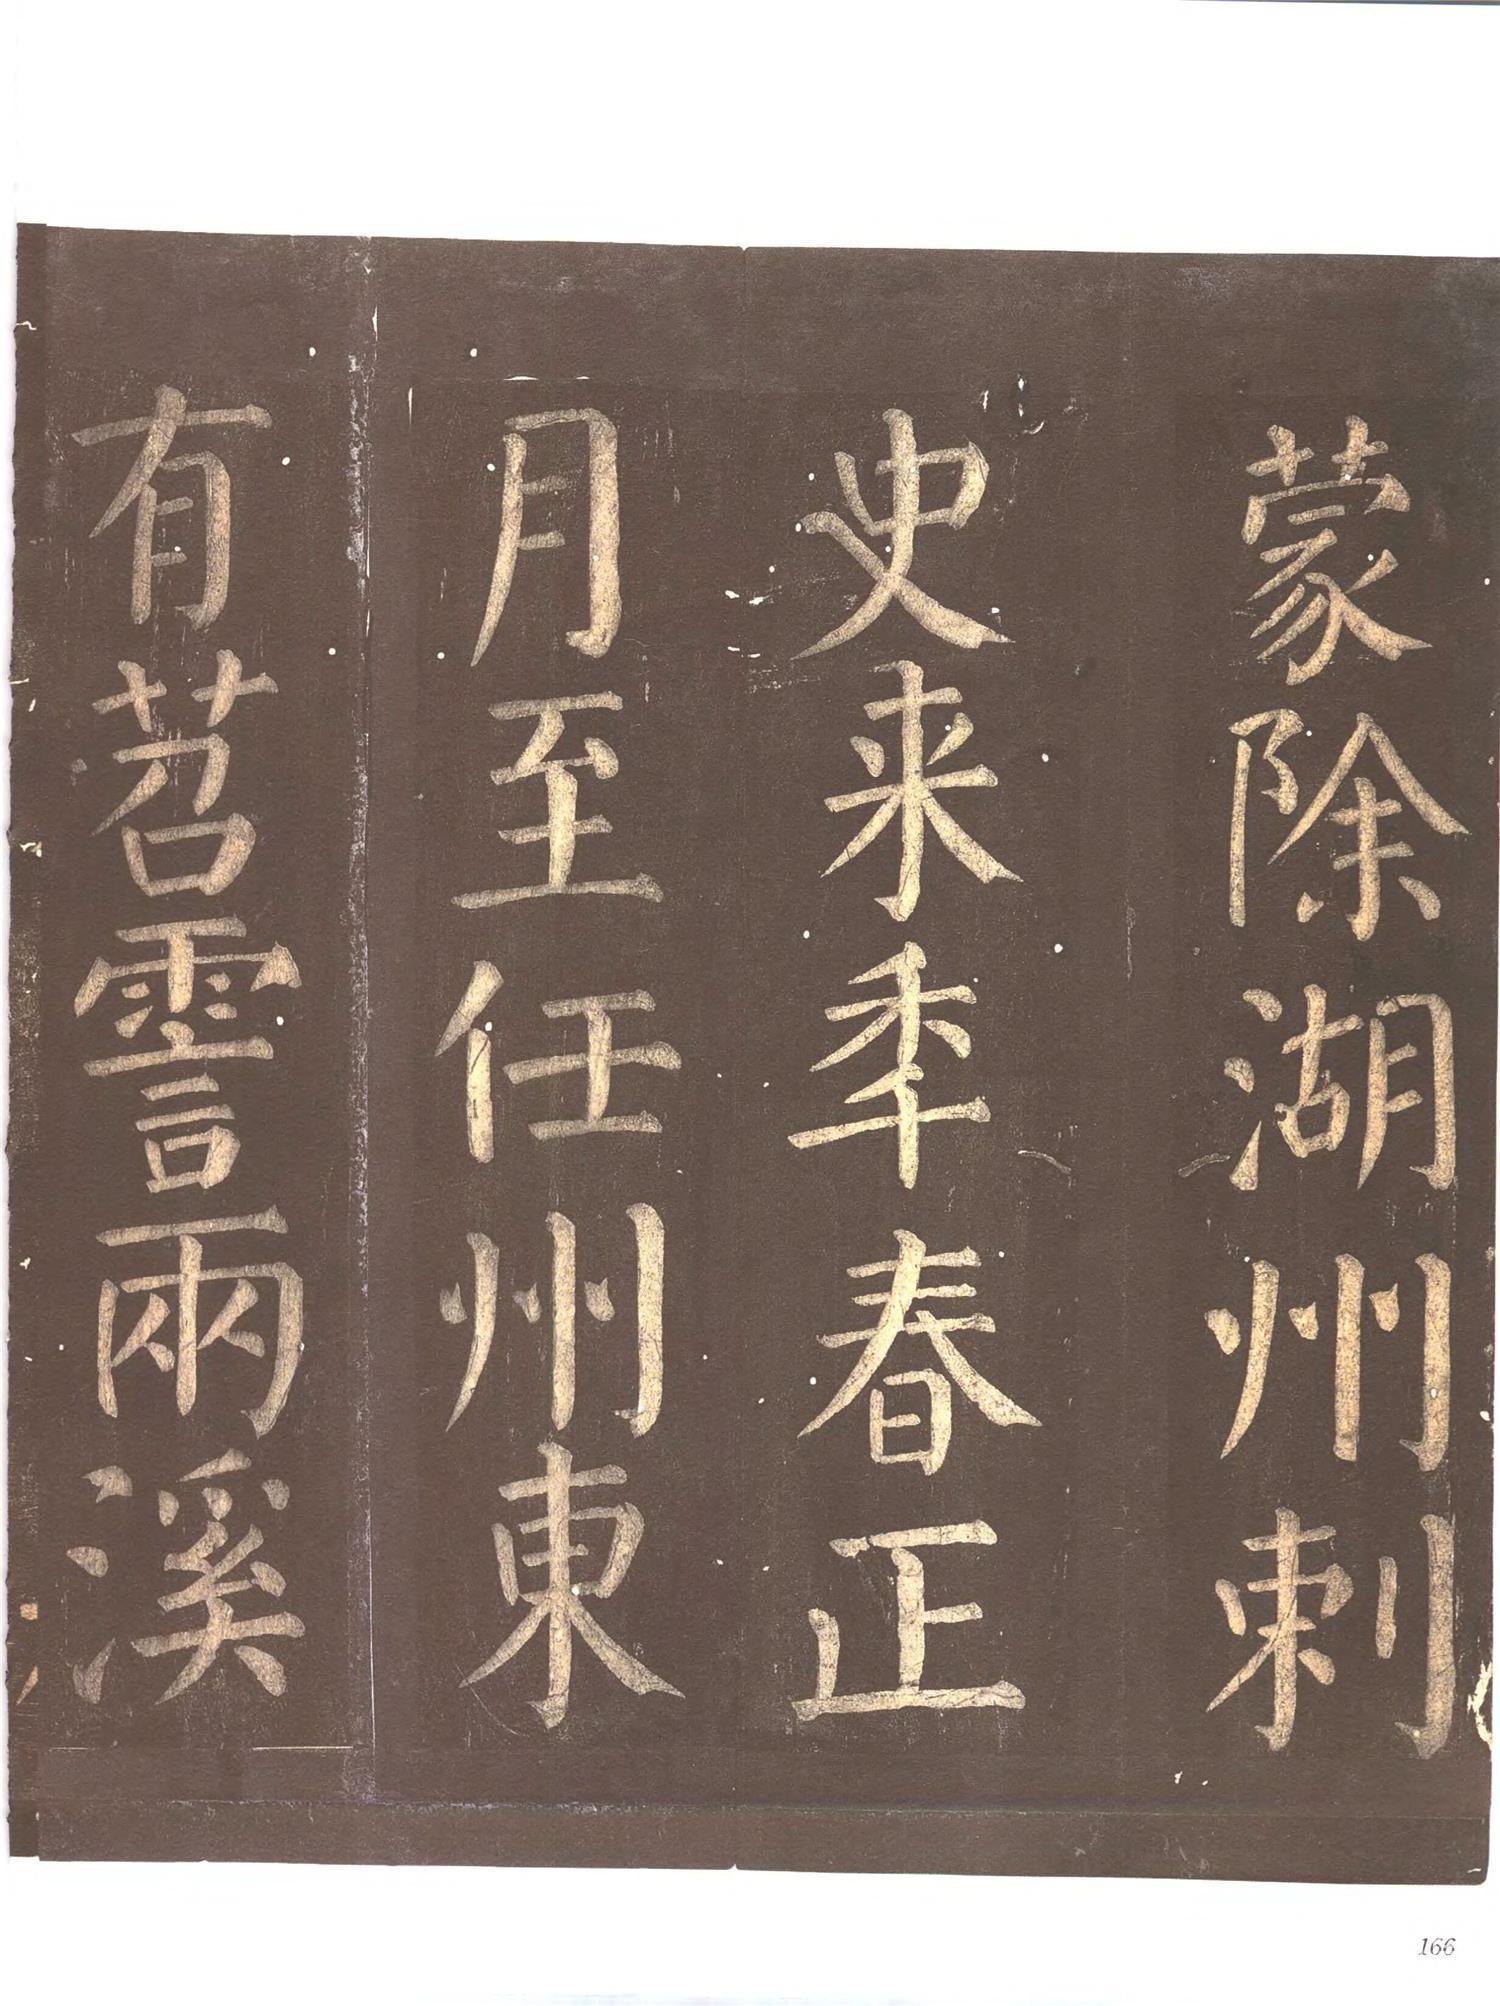 蒙除湖州刺
史来秊春正
月至任州東
有苕霅兩溪
166